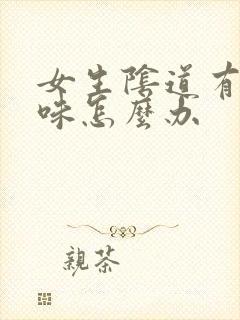 女生陰道有
味怎麼办
親茶